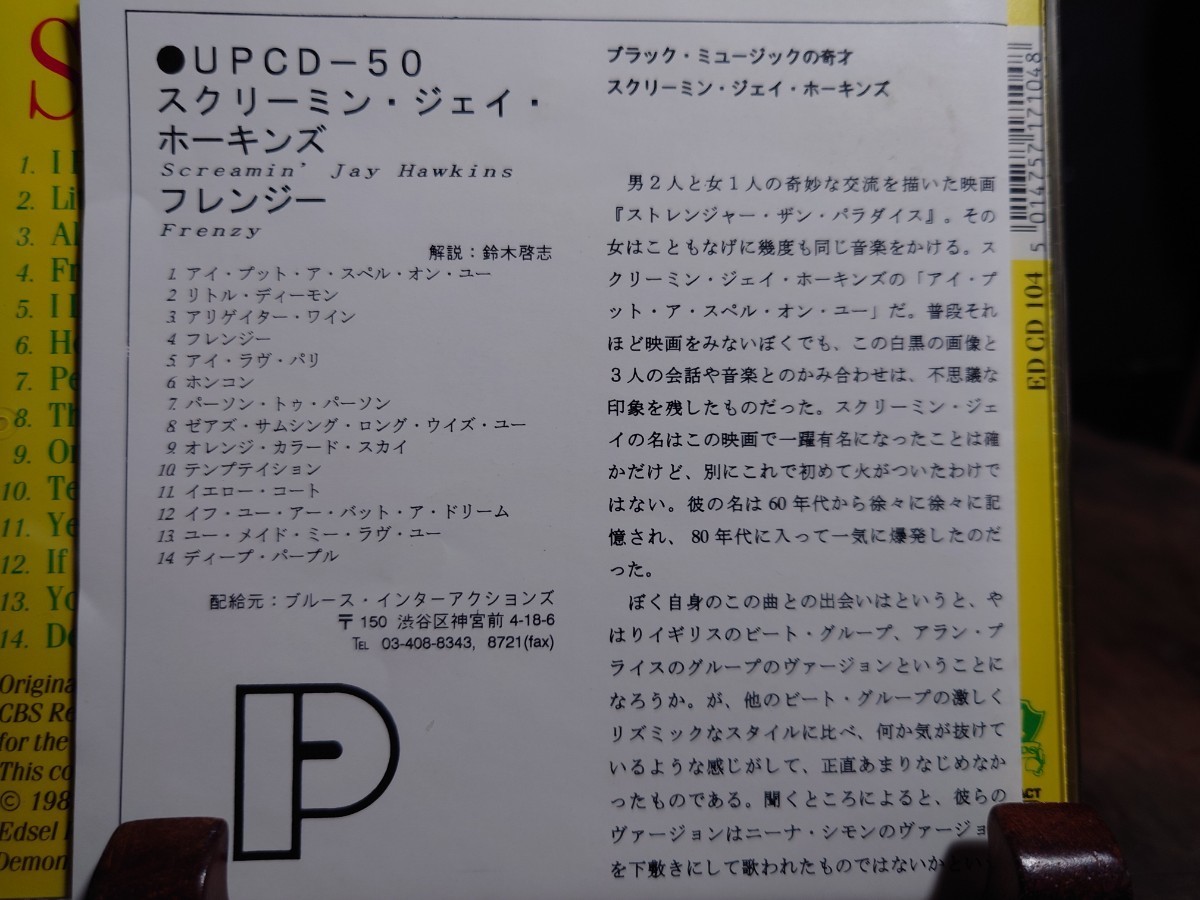 ●UPCD－50
スクリーミン・ジェイ・
ホーキンズ
Screamin' Jay Hawkins
フレンジー
Frenzy
解説：鈴木啓志
1. アイ・プット・ア・スペル・オン・ユー
2 リトル・ディーモン
3. アリゲイター・ワイン
4 フレンジー
5. アイ・ラヴ・パリ
6 ホンコン
7. パーソン・トゥ・パーソン
8 ゼアズ・サムシング・ロング・ウイズ・ユー
9. オレンジ・カラード・スカイ
10. テンプテイション
11. イエロー・コート
12 イフ・ユー・アー・バット・ア・ドリーム
13. ユー・メイド・ミー・ラヴ・ユー
14 ディープ・パープル
配給元：ブルース・インターアクションズ
〒150 渋谷区神宮前 4-18-6
TEL 03-408-8343, 8721(fax)
ブラック・ミュージックの奇才
スクリーミン・ジェイ・ホーキンズ
男２人と女１人の奇妙な交流を描いた映画
『ストレンジャー・ザン・パラダイス』。その
女はこともなげに幾度も同じ音楽をかける。ス
クリーミン・ジェイ・ホーキンズの「アイ・プ
ット・ア・スペル・オン・ユー」だ。普段それ
ほど映画をみないぼくでも、この白黒の画像と
３人の会話や音楽とのかみ合わせは、不思議な
印象を残したものだった。スクリーミン・ジェ
イの名はこの映画で一躍有名になったことは確
かだけど、別にこれで初めて火がついたわけで
はない。彼の名は60年代から徐々に徐々に記
憶され、80年代に入って一気に爆発したのだ
った。
ぼく自身のこの曲との出会いはというと、や
はりイギリスのビート・グループ、アラン・プ
ライスのグループのヴァージョンということに
なろうか。が、他のビート・グループの激しく
リズミックなスタイルに比べ、何か気が抜けて
いるような感じがして、正直あまりなじめなか
ったものである。聞くところによると、彼らの
ヴァージョンはニーナ・シモンのヴァージョ
を下敷きにして歌われたものではないかとい
S
1. I
2. Li
3. Al
4. Fr
5. I
6. Ho
7. Pe
8. Th
9. Or
10. Te
11. Ye
12. If
13. Yo
14. De
Origina
CBS Re
for the
This co
© 198
Edsel
Demon
5 014757 171048
ED CD 104
ACT